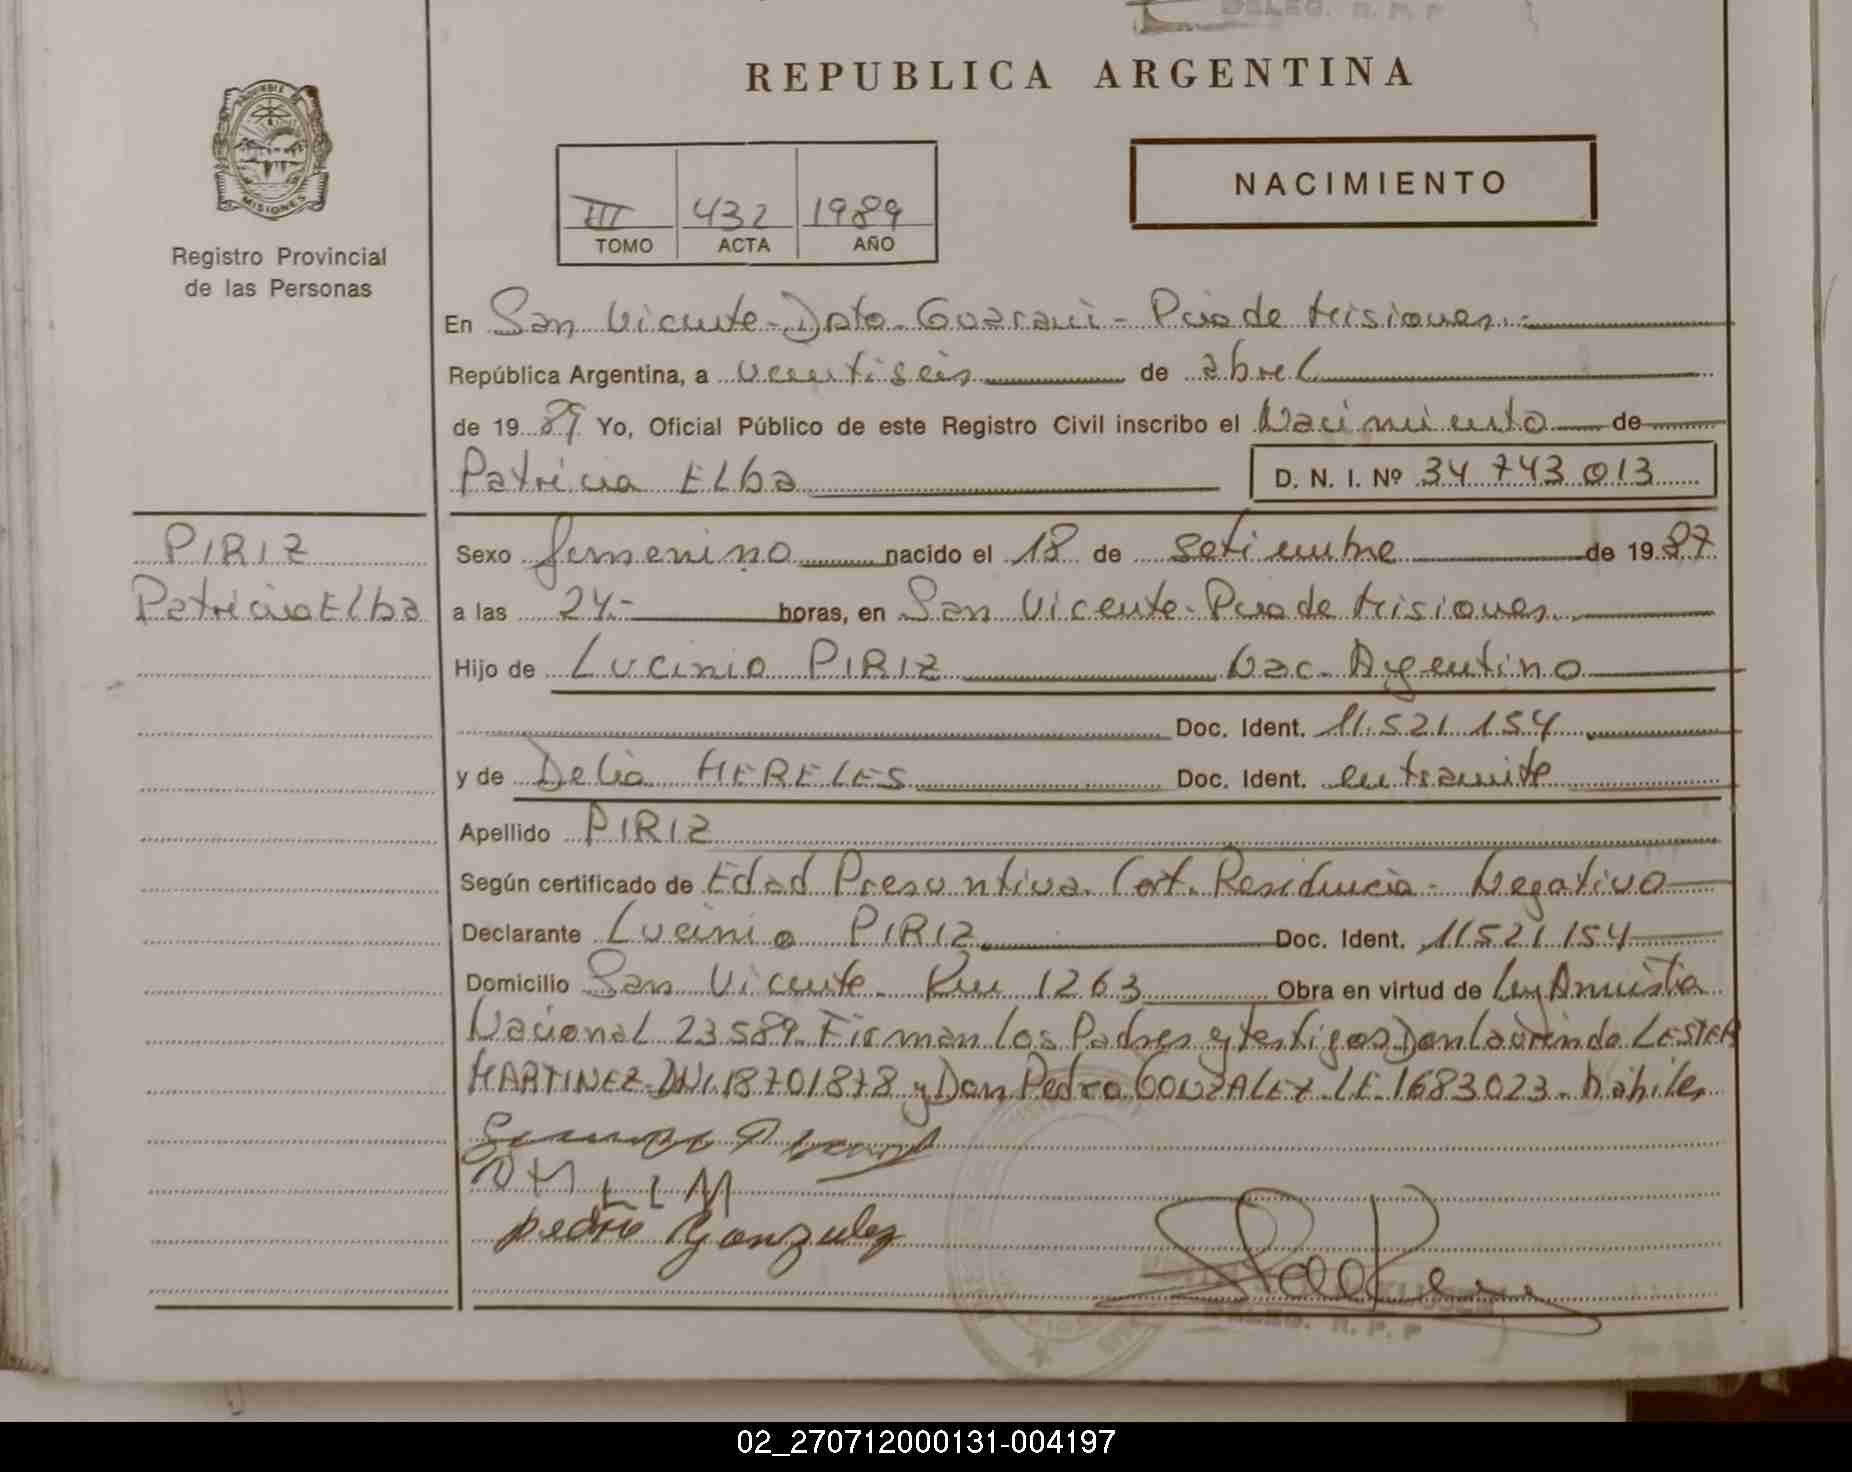 DELEG. R. P. P
REPUBLICA ARGENTINA
MISIONES
Registro Provincial
de las Personas
III 432 1989
TOMO ACTA AÑO
NACIMIENTO
En San Vicente - Dpto. Guarani - Pcia de Misiones.-
República Argentina, a ventiseis de abril
de 1989 Yo, Oficial Público de este Registro Civil inscribo el Nacimiento de
Patricia Elba D. N. I. Nº 34 743 013
PIRIZ
Patricia Elba
Sexo femenino nacido el 18 de setiembre de 1987
a las 24.- horas, en San Vicente - Pcia de Misiones.
Hijo de Lucinio PIRIZ Nac. Argentino
Doc. Ident. 11.521.154
y de Delia MERELES Doc. Ident. en tramite
Apellido PIRIZ
Según certificado de Edad Presuntiva. Cert. Residencia - Negativo
Declarante Lucinio PIRIZ Doc. Ident. 11521154
Domicilio San Vicente - Km 1263 Obra en virtud de Ley Amnistia
Nacional 23589. Firman los Padres y testigos Don Laurindo LESTER
MARTINEZ - DNI. 18701878 y Don Pedro GONZALEZ - LE. 1683023 - habiles
DM LLM
pedro Gonzalez
DELEG. R. P. P
02_270712000131-004197